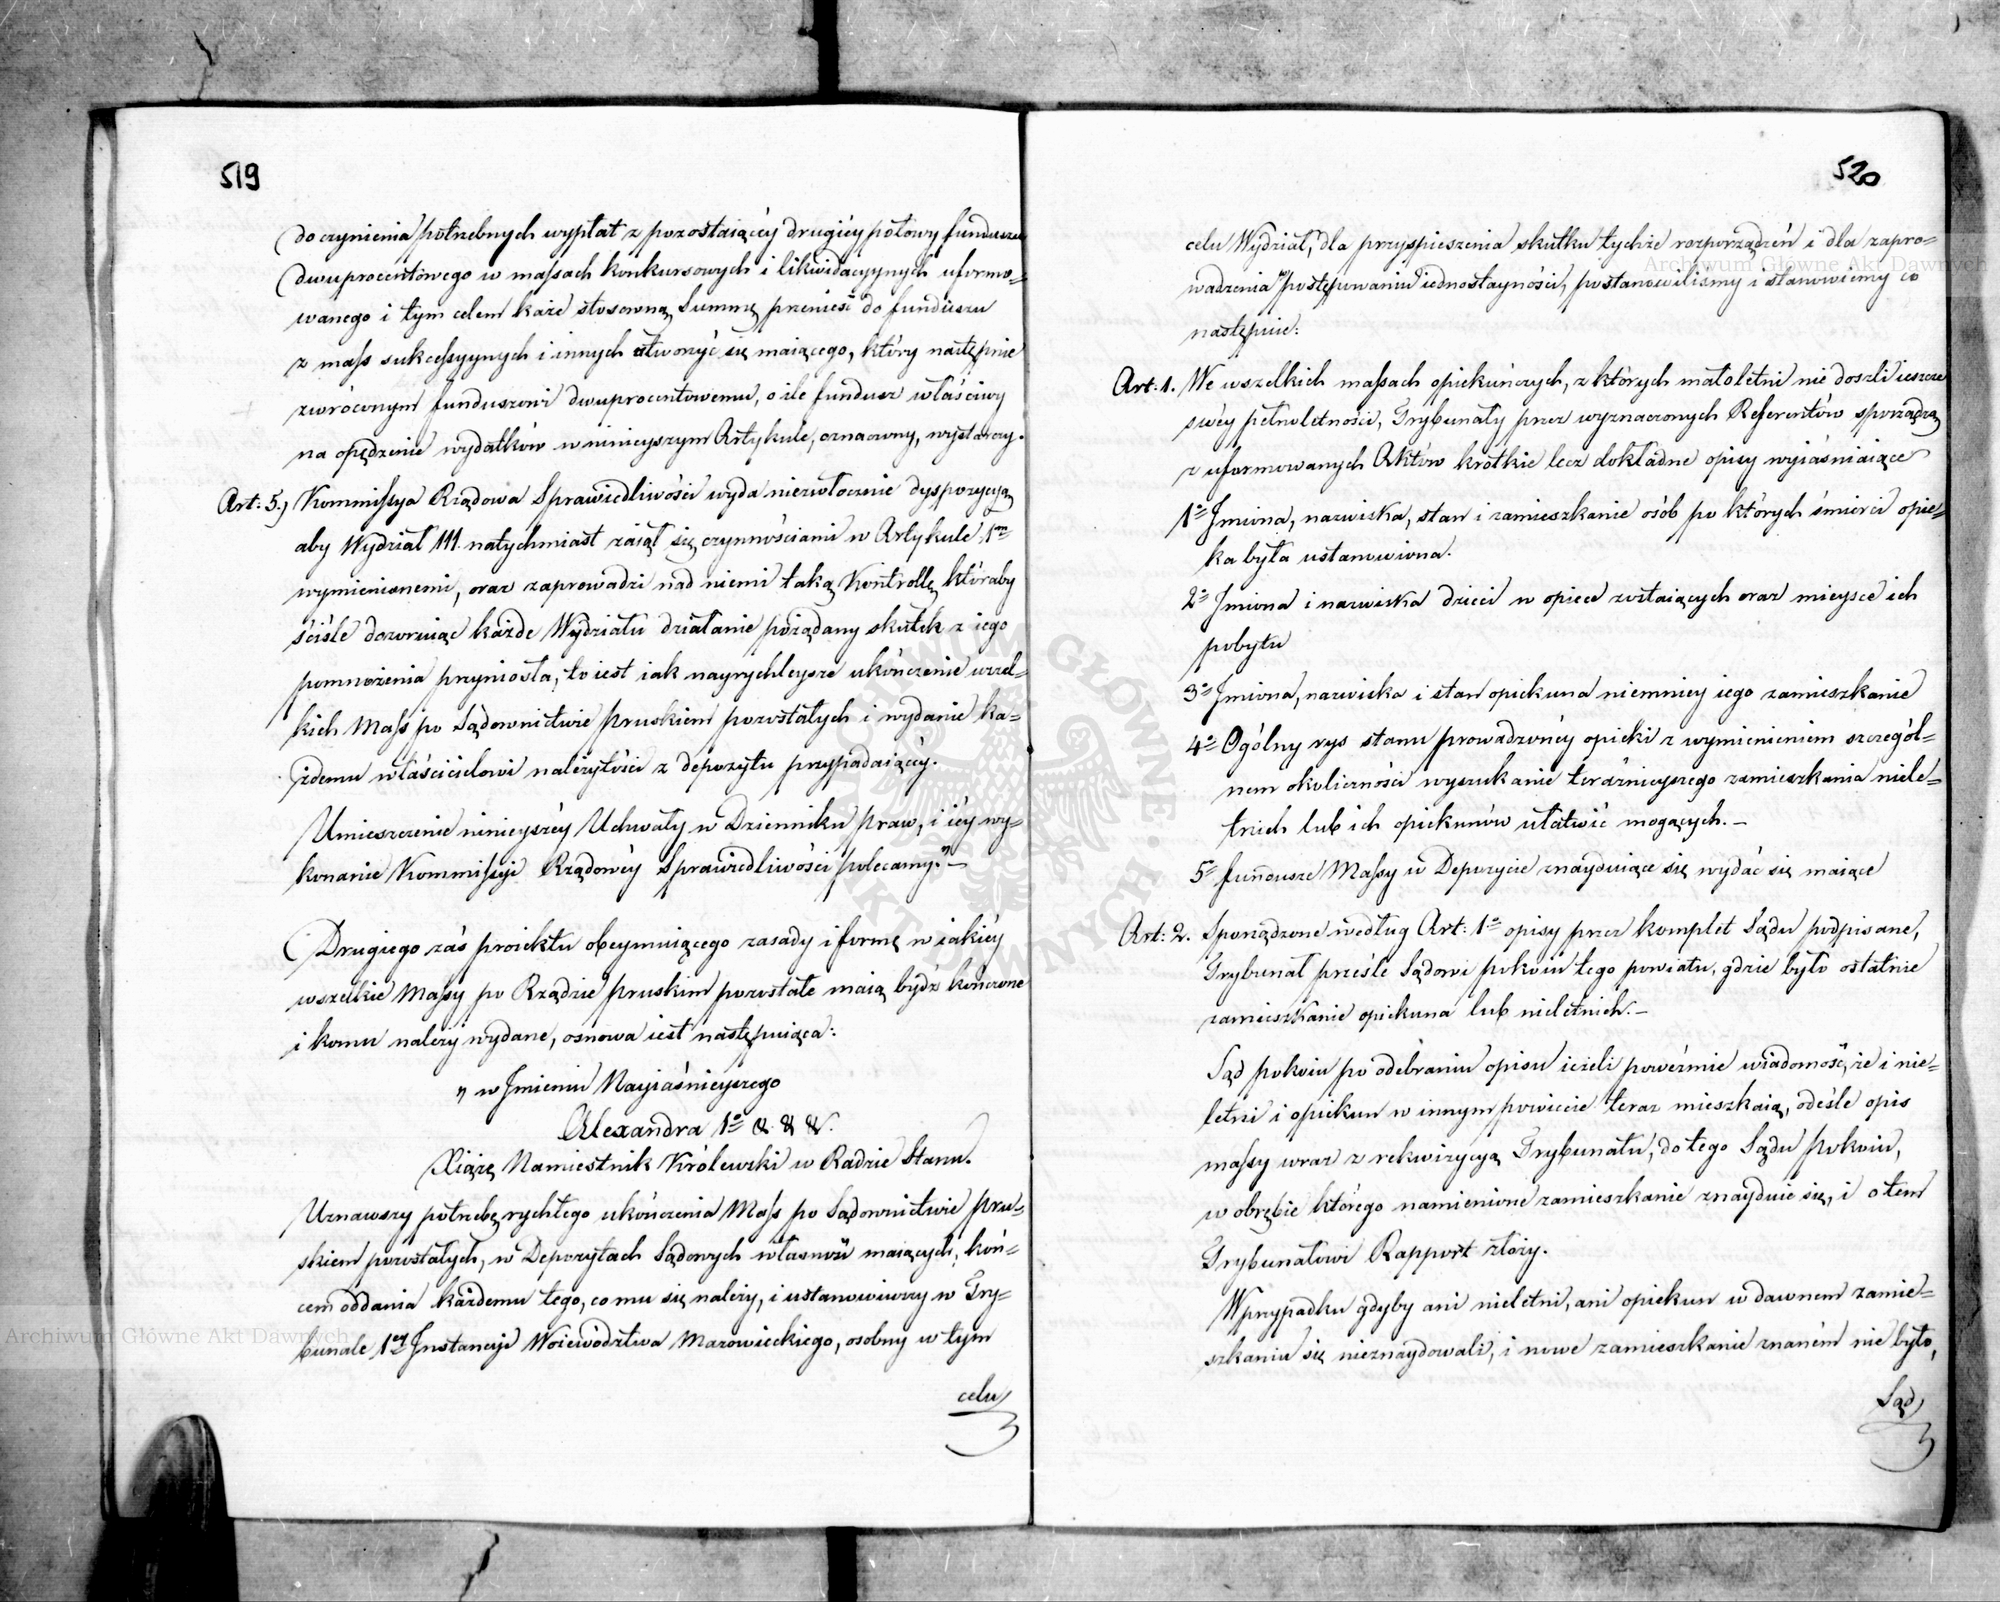 519
do czynienia potrzebnych wypłat z pozostaiącéy drugiéy połowy funduszu
dwuprocentowego w massach konkursowych i likwidacyynych uformo=
wanego i tym celem każe stosowną Summę przenieść do funduszu
z mass sukcessyynych i innych utworzyć się maiącego, który następnie
zwróconym funduszowi dwuprocentowemu, o ile fundusz właściwy
na opędzenie wydatków w ninieyszym Artykule, oznaczony, wystarczy.
Art: 5.) Kommissya Rządowa Sprawiedliwości wyda niezwłocznie dyspozycyą
aby Wydział III. natychmiast zaiął się czynnościami w Artykule 1m
wymienionemi, oraz zaprowadzi nad niemi taką Kontrollę, któraby
ściśle dozoruiąc każde Wydziału działanie pożądany skutek z iego
pomnożenia przyniosła, to iest iak nayrychleysze ukończenie wszel=
kich Mass po Sądownictwie pruskiem pozostałych i wydanie ka=
żdemu właścicielowi należytości z depozytu przypadaiącéy.
Umieszczenie ninieyszéy Uchwały w Dzienniku praw, i iéy wy=
konanie Kommissyi Rządowéy Sprawiedliwości polecamy." —
Drugiego zaś proiektu obeymuiącego zasady i formę w iakiéy
wszelkie Massy po Rządzie pruskim pozostałe maią bydź kończone
i komu należy wydane, osnowa iest następuiąca:
„ w Imieniu Nayiaśnieyszego
Alexandra 1o & & &.
Xiążę Namiestnik Królewski w Radzie Stanu.
Uznawszy potrzebę rychłego ukończenia Mass po Sądownictwie pru=
skiem pozostałych, w Depozytach Sądowych własność maiących, koń=
cem oddania każdemu tego, co mu się należy, i ustanowiwszy w Try=
bunale 1ey Instancyi Woiewództwa Mazowieckiego, osobny w tym
celu
520
celu Wydział, dla przyspieszenia skutku tychże rozporządzeń i dla zapro=
wadzenia w postępowaniu iednostayności, postanowiliśmy i stanowiemy co
następuie:
Art: 1. We wszelkich massach opiekuńczych, z których małoletni nie doszli ieszcze
swéy pełnoletności, Trybunały przez wyznaczonych Referentów sporządzą
z uformowanych Aktów krótkie lecz dokładne opisy wyiaśniaiące
1o Imiona, nazwiska, stan i zamieszkanie osób po których śmierci opie=
ka była ustanowiona.
2o Imiona i nazwiska dzieci w opiece zostaiących oraz mieysce ich
pobytu
3o Imiona, nazwiska i stan opiekuna niemniey iego zamieszkanie
4o Ogólny rys stanu prowadzonéy opieki z wymienieniem szczegól=
nem okoliczności wyszukanie teraźnieyszego zamieszkania niele=
tnich lub ich opiekunów ułatwić mogących. —
5o fundusze Massy w Depozycie znayduiące się wydać się maiące
Art: 2. Sporządzone według Art: 1o opisy przez komplet Sądu podpisane,
Trybunał prześle Sądowi pokoiu tego powiatu, gdzie było ostatnie
zamieszkanie opiekuna lub nieletnich. —
Sąd pokoiu po odebraniu opisu ieżeli poweźmie wiadomość, że i nie=
letni i opiekun w innym powiecie teraz mieszkaią, odeśle opis
massy wraz z rekwizycyą Trybunału, do tego Sądu pokoiu,
w obrębie którego namienione zamieszkanie znayduie się, i o tem
Trybunałowi Rapport złoży.
W przypadku gdyby ani nieletni, ani opiekun w dawnem zamie=
szkaniu się nieznaydowali, i nowe zamieszkanie znaném nie było,
Sąd
Archiwum Główne Akt Dawnych
Archiwum Główne Akt Dawnych
ARCHIWUM GŁÓWNE AKT DAWNYCH